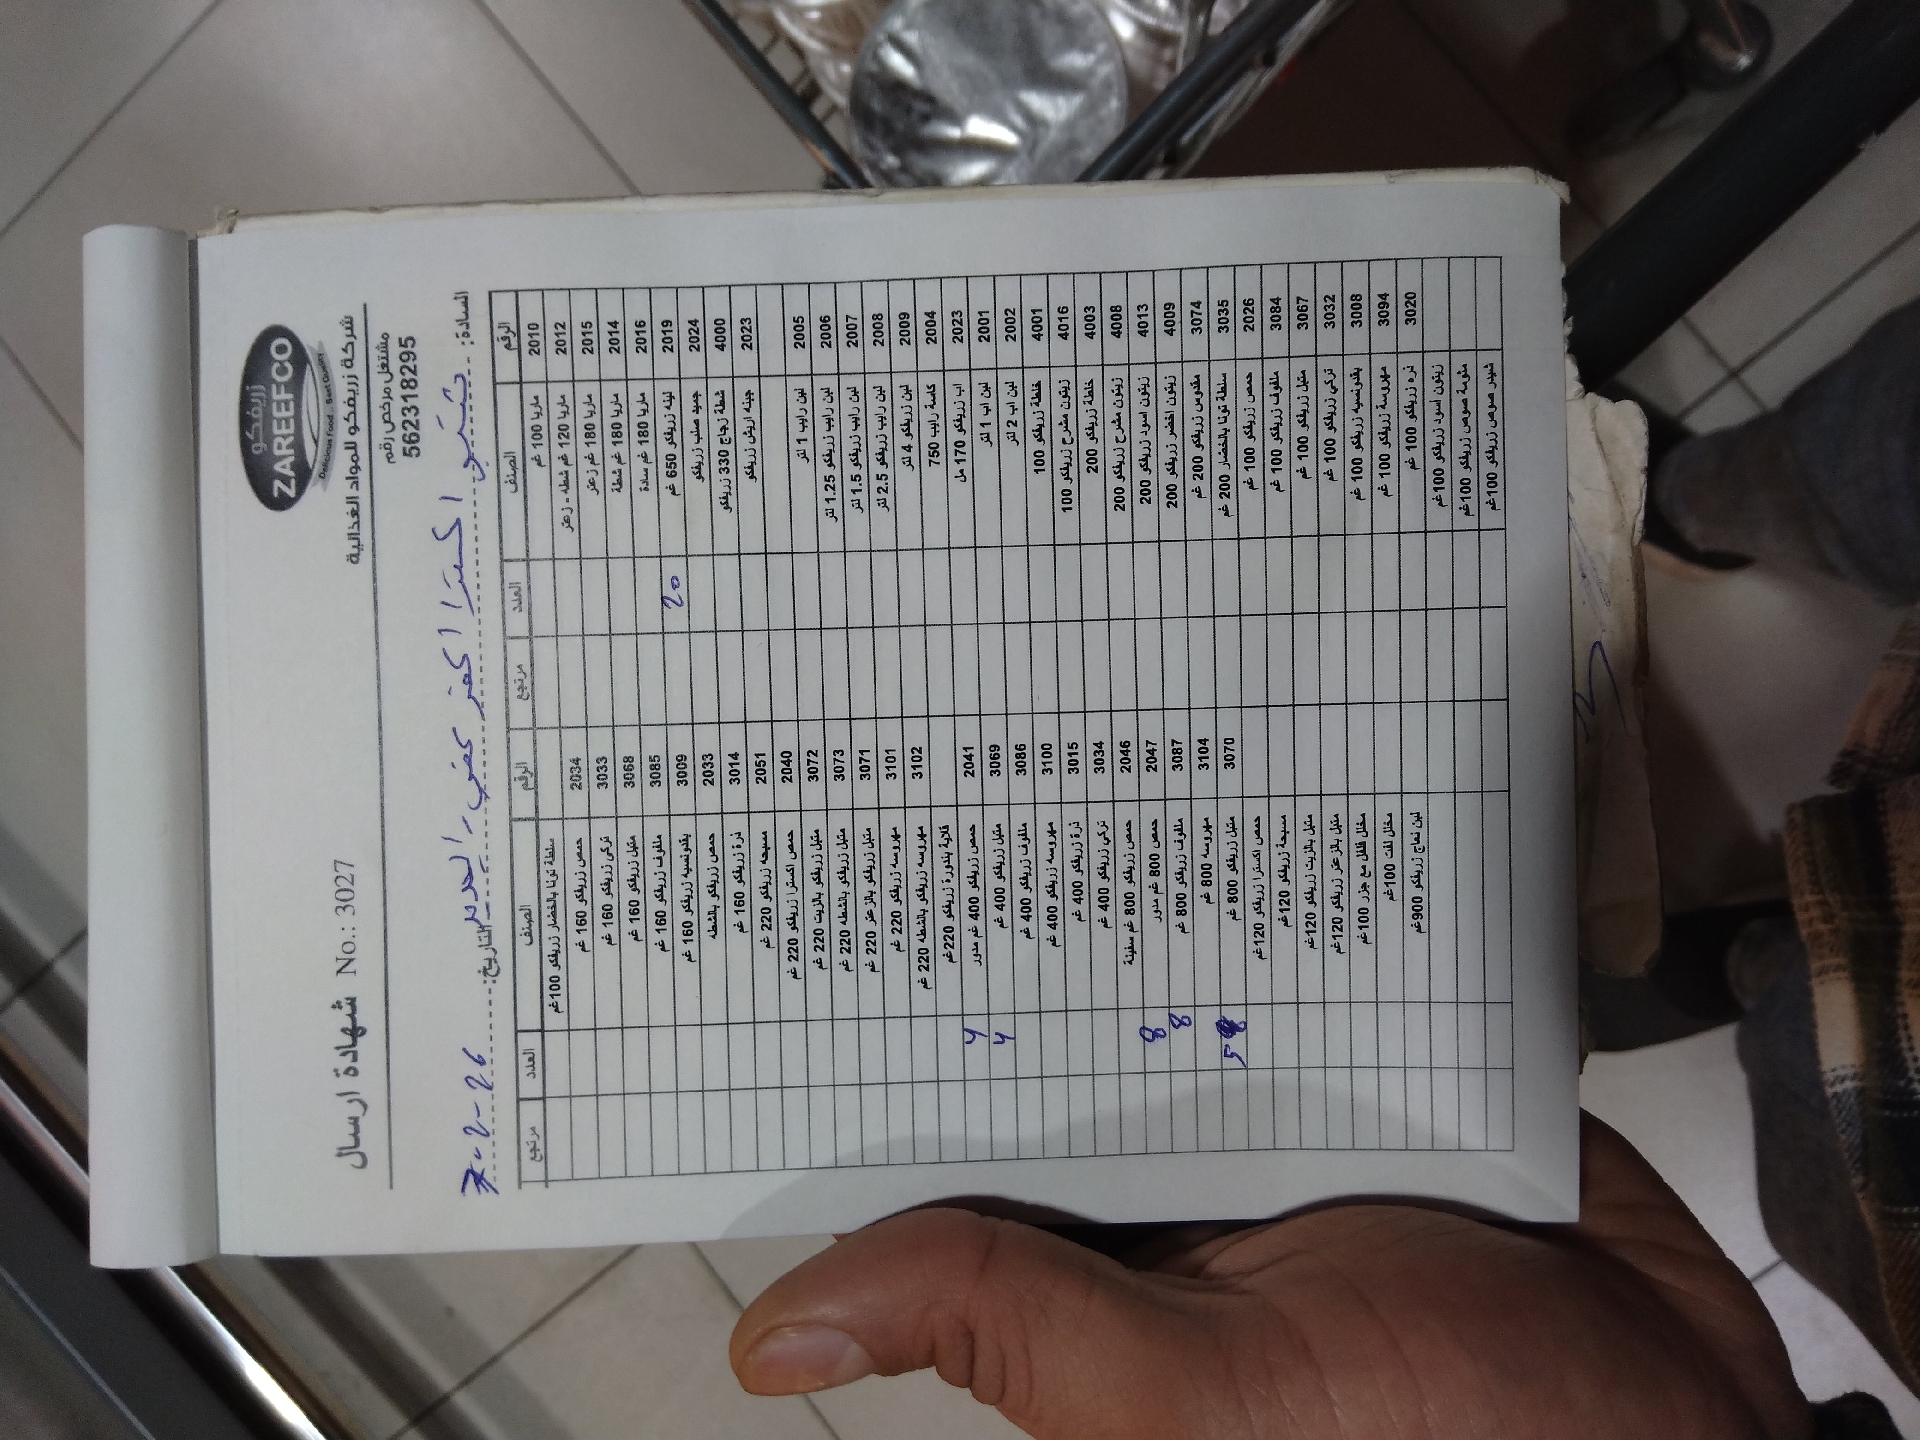 زريفكو
ZAREEFCO
Delicious Food .. Best Quality
شركة زريفكو للمواد الغذائية
مشتغل مرخص رقم
562318295
شهادة ارسال No.: 3027
السادة: اكسترا
التاريخ: 7-2-26
الرقم الصنف العدد مرتجع الرقم الصنف العدد مرتجع
2010 ماريا 100 غم سلطة تونا بالخضار زريفكو 100غم
2012 ماريا 120 غم شطه - زعتر 2034 حمص زريفكو 160 غم
2015 ماريا 180 غم زعتر 3033 تركي زريفكو 160 غم
2014 ماريا 180 غم شطة 3068 متبل زريفكو 160 غم
2016 ماريا 180 غم سادة 3085 ملفوف زريفكو 160 غم
2019 لبنه زريفكو 650 غم 20 3009 بقدونسيه زريفكو 160 غم
2024 جميد صلب زريفكو 2033 حمص زريفكو بالشطه
4000 شطة زجاج 330 زريفكو 3014 ذرة زريفكو 160 غم
2023 جبنه اريش زريفكو 2051 مسبحه زريفكو 220 غم
2040 حمص اكسترا زريفكو 220 غم
2005 لبن رايب 1 لتر 3072 متبل زريفكو بالزيت 220 غم
2006 لبن رايب زريفكو 1.25 لتر 3073 متبل زريفكو بالشطه 220 غم
2007 لبن رايب زريفكو 1.5 لتر 3071 متبل زريفكو بالزعتر 220 غم
2008 لبن رايب زريفكو 2.5 لتر 3101 مهروسه زريفكو 220 غم
2009 لبن زريفكو 4 لتر 3102 مهروسه زريفكو بالشطه 220 غم
2004 كاسة رايب 750 قلاية بندورة زريفكو 220غم
2023 اب زريفكو 170 مل 2041 حمص زريفكو 400 غم مدور 4
2001 لبن اب 1 لتر 3069 متبل زريفكو 400 غم 4
2002 لبن اب 2 لتر 3086 ملفوف زريفكو 400 غم
4001 خلطة زريفكو 100 3100 مهروسه زريفكو 400 غم
4016 زيتون مشرح زريفكو 100 3015 ذرة زريفكو 400 غم
4003 خلطة زريفكو 200 3034 تركي زريفكو 400 غم
4008 زيتون مشرح زريفكو 200 2046 حمص زريفكو 800 غم سفينة
4013 زيتون اسود زريفكو 200 2047 حمص 800 غم مدور 8
4009 زيتون اخضر زريفكو 200 3087 ملفوف زريفكو 800 غم 8
3074 مقدوس زريفكو 200 غم 3104 مهروسه 800 غم
3035 سلطة تونا بالخضار 200 غم 3070 متبل زريفكو 800 غم 5
2026 حمص زريفكو 100 غم حمص اكسترا زريفكو 120غم
3084 ملفوف زريفكو 100 غم مسبحة زريفكو 120غم
3067 متبل زريفكو 100 غم متبل بالزيت زريفكو 120غم
3032 تركي زريفكو 100 غم متبل بالزعتر زريفكو 120غم
3008 بقدونسيه زريفكو 100 غم مخلل فلفل مع جزر 100غم
3094 مهروسة زريفكو 100 غم مخلل لفت 100غم
3020 ذره زريفكو 100 غم لبن نعاج زريفكو 900غم
زيتون اسود زريفكو 100غم
مثومة صوص زريفكو 100غم
شيدر صوص زريفكو 100غم